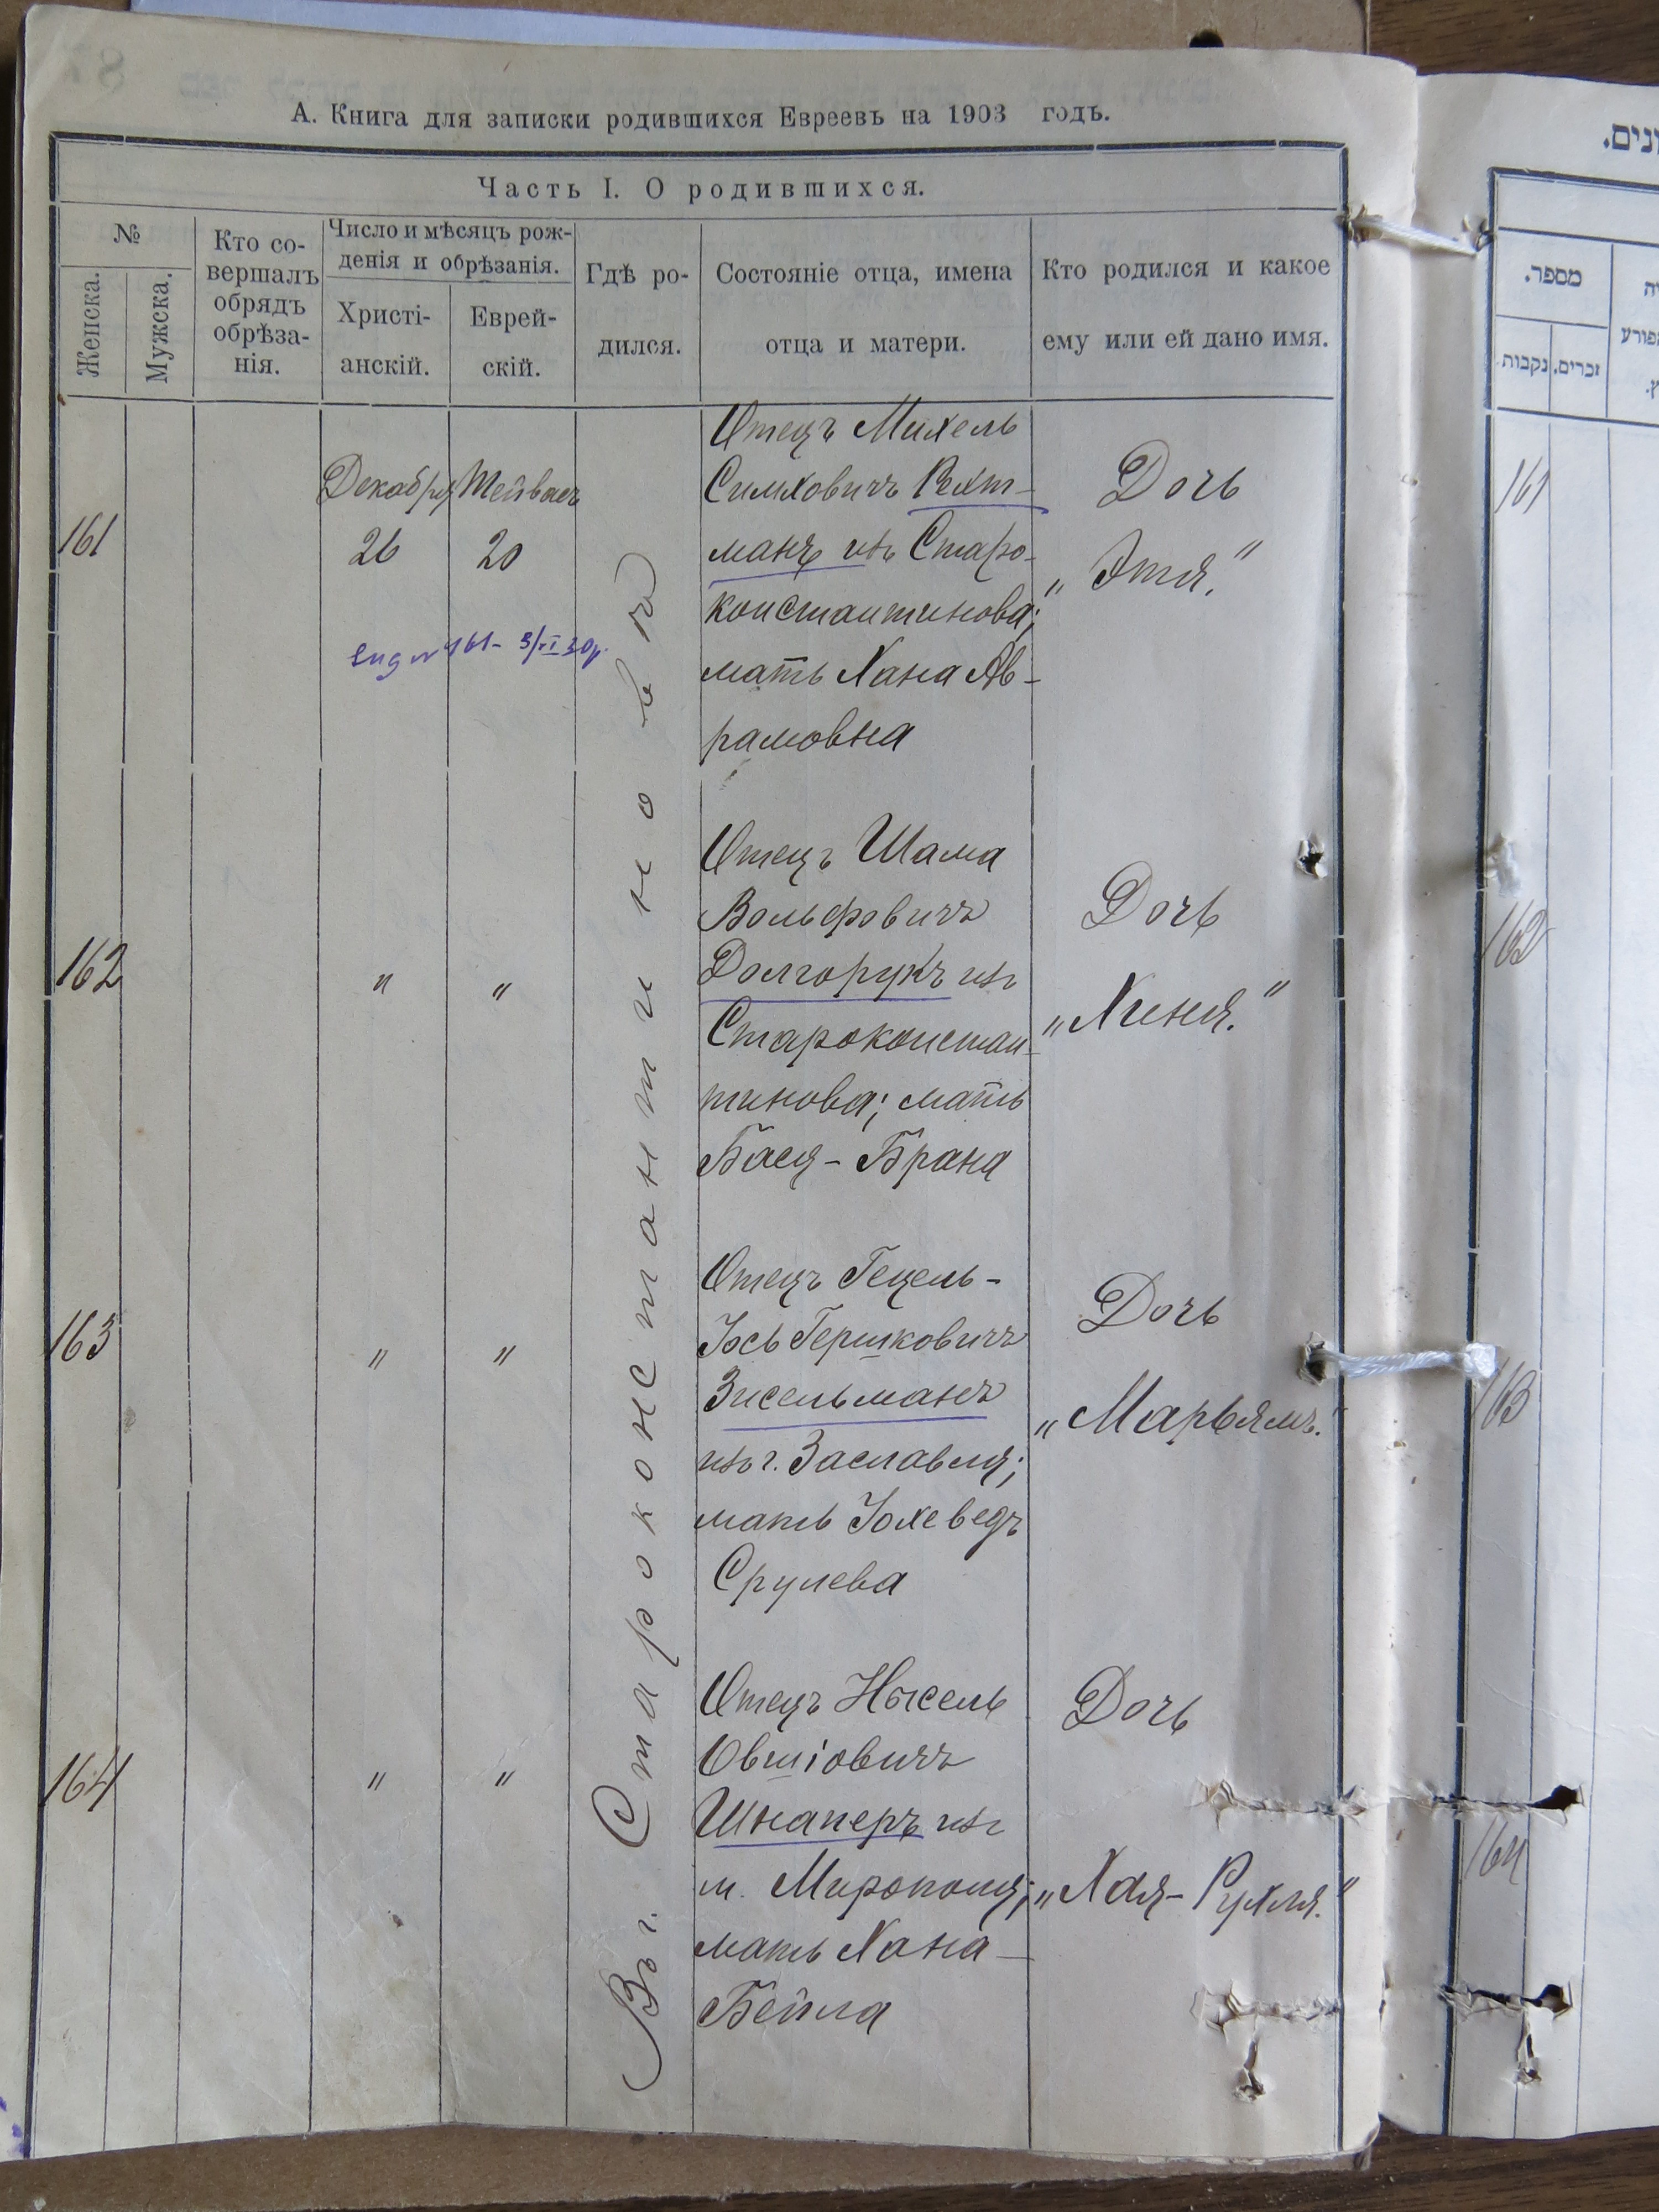 А. Книга для записки родившихся Евреевъ на 1903 годъ.
Часть I. О родившихся.
№
Женска.
Мужска.
Кто со-
вершалъ
обрядъ
обрѣза-
нія.
Число и мѣсяцъ рож-
денія и обрѣзанія.
Христі-
анскій.
Еврей-
скій.
Гдѣ ро-
дился.
Состояніе отца, имена
отца и матери.
Кто родился и какое
ему или ей дано имя.
161
Декабря
26
Тейвасъ
20
161 - 3/VI 30р.
Въ г. Староконстантиновѣ
Отецъ Михель
Симховичъ Рехт-
манъ изъ Старо-
константинова;
мать Хана Ав-
рамовна
Дочь
„Этя."
162
"
"
Отецъ Шама
Вольфовичъ
Долгорукъ изъ
Староконстан-
тинова; мать
Бася-Брана
Дочь
„Хиня."
163
"
"
Отецъ Гецель-
Іось Гершковичъ
Зисельманъ
изъ г. Заславля;
мать Іохеведъ
Срулева
Дочь
„Марьямъ."
164
"
"
Отецъ Нысель
Овшіовичъ
Шнаперъ изъ
м. Мирополя;
мать Хана-
Бейла
Дочь
„Хая-Рухля."
מספר.
נקבות.
זכרים.
161
162
163
164